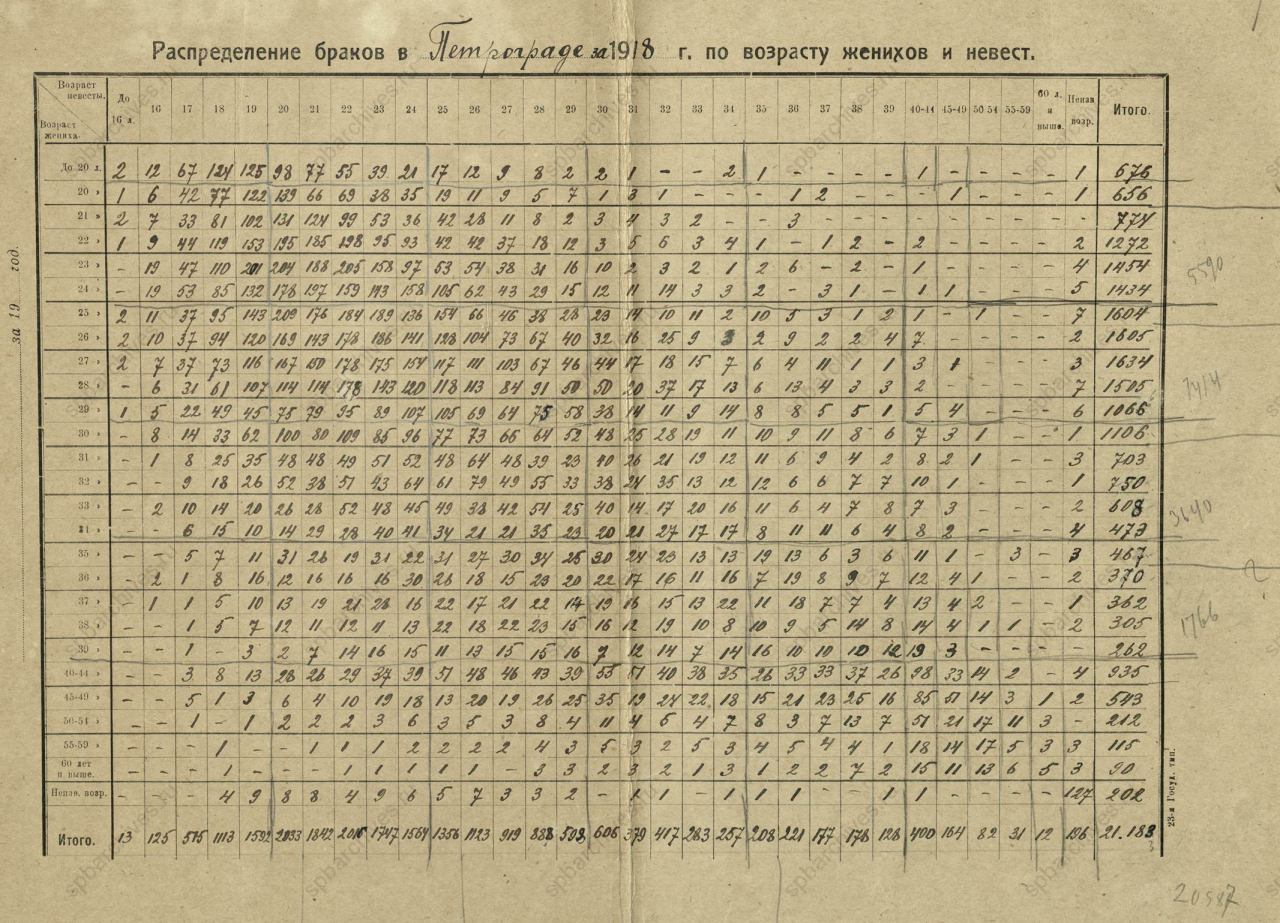 Распределение браков в Петрограде за 1918 г. по возрасту женихов и невест.
Возраст невесты. До 16 л. 16 17 18 19 20 21 22 23 24 25 26 27 28 29 30 31 32 33 34 35 36 37 38 39 40-44 45-49 50-54 55-59 60 л. и выше. Неизв. возр. Итого.
Возраст жениха.
До 20 л. 2 12 67 124 125 98 77 55 39 21 17 12 9 8 2 2 1 - - 2 1 - - - - 1 - - - - 1 676
20 › 1 6 42 77 122 139 66 69 38 35 19 11 9 5 7 1 3 1 - - - 1 2 - - - 1 - - - 1 656
21 » 2 7 33 81 102 131 124 99 53 36 42 28 11 8 2 3 4 3 2 - - 3 - - - - - - - - 774
22 › 1 9 44 119 153 195 185 198 95 93 42 42 37 18 12 3 5 6 3 4 1 - 1 2 - 2 - - - - 2 1272
23 › - 19 47 110 201 204 188 205 158 97 53 54 38 31 16 10 2 3 2 1 2 6 - 2 - 1 - - - - 4 1454
24 › - 19 53 85 132 178 197 159 143 158 105 62 43 29 15 12 11 14 3 3 2 - 3 1 - 1 1 - - - 5 1434
25 › 2 11 37 95 143 209 176 184 189 136 154 66 46 38 28 23 14 10 11 2 10 5 3 1 2 1 - 1 - - 7 1604
26 › 2 10 37 94 120 169 143 178 186 141 128 104 73 67 40 32 16 25 9 3 2 9 2 2 4 7 - - - - 2 1605
27 › 2 7 37 73 116 167 150 178 175 154 117 111 103 67 46 44 17 18 15 7 6 4 11 1 1 3 1 - - - 3 1634
28 › - 6 31 61 107 114 114 178 143 120 118 113 84 91 50 50 20 37 17 13 6 13 4 3 3 2 - - - - 7 1505
29 › 1 5 22 49 45 75 79 95 89 107 105 69 64 75 58 38 14 11 9 14 8 8 5 5 1 5 4 - - - 6 1066
30 › - 8 14 33 62 100 80 109 85 96 77 73 66 64 52 48 25 28 19 11 10 9 11 8 6 7 3 1 - - 1 1106
31 › - 1 8 25 35 48 48 49 51 52 48 64 48 39 23 40 26 21 19 12 11 6 9 4 2 8 2 1 - - 3 703
32 › - - 9 18 26 52 38 51 43 64 61 79 49 55 33 38 24 35 13 12 12 6 6 7 7 10 1 - - - 1 750
33 › - 2 10 14 20 26 28 52 48 45 49 38 42 54 25 40 14 17 20 16 11 6 4 7 8 7 3 - - - 2 608
34 › - - 6 15 10 14 29 28 40 41 34 21 21 35 23 20 21 27 17 17 8 11 11 6 4 8 2 - - - 4 473
35 › - - 5 7 11 31 26 19 31 22 31 27 30 34 25 30 24 23 13 13 19 13 6 3 6 11 1 - 3 - 3 467
36 › - 2 1 8 16 12 16 16 16 30 26 18 15 23 20 22 17 16 11 16 7 19 8 9 7 12 4 1 - - 2 370
37 › - 1 1 5 10 13 19 21 28 16 22 17 21 22 14 19 16 15 13 22 11 18 7 7 4 13 4 2 - - 1 362
38 › - - 1 5 7 12 11 12 11 13 22 18 22 23 15 16 12 19 10 8 10 9 5 14 8 14 4 1 1 - 2 305
39 › - - 1 - 3 2 7 14 16 15 11 13 15 15 16 7 12 14 7 14 16 10 10 10 12 19 3 - - - - 262
40-44 › - - 3 8 13 28 26 29 37 39 51 48 46 43 39 55 51 40 38 35 26 33 33 37 26 98 33 14 2 - 4 935
45-49 › - - 5 1 3 6 4 10 19 18 13 20 19 26 25 35 19 24 22 18 15 21 23 25 16 85 51 14 3 1 2 543
50-54 › - - 1 - 1 2 2 2 3 6 3 5 3 8 4 11 4 6 4 7 8 9 7 13 7 51 21 17 11 3 - 212
55-59 › - - - 1 - - 1 1 1 2 2 2 2 4 3 5 3 2 5 3 4 5 4 4 1 18 14 17 5 3 3 115
60 лет и выше. - - - 1 - - - 1 1 1 1 1 - 3 3 2 3 2 1 3 1 2 2 7 2 15 11 13 6 5 3 90
Неизв. возр. - - - 4 9 8 8 4 9 6 5 7 3 3 2 - 1 1 - 1 1 1 - - 1 1 - - - - 127 202
Итого. 13 125 515 1113 1592 2033 1842 2016 1747 1564 1356 1123 919 888 598 606 379 417 283 257 208 221 177 178 128 400 164 82 31 12 196 21.183
за 19 год.
5590
7414
3640
1766
20587
23-я Госуд. тип.
spbarchives.ru